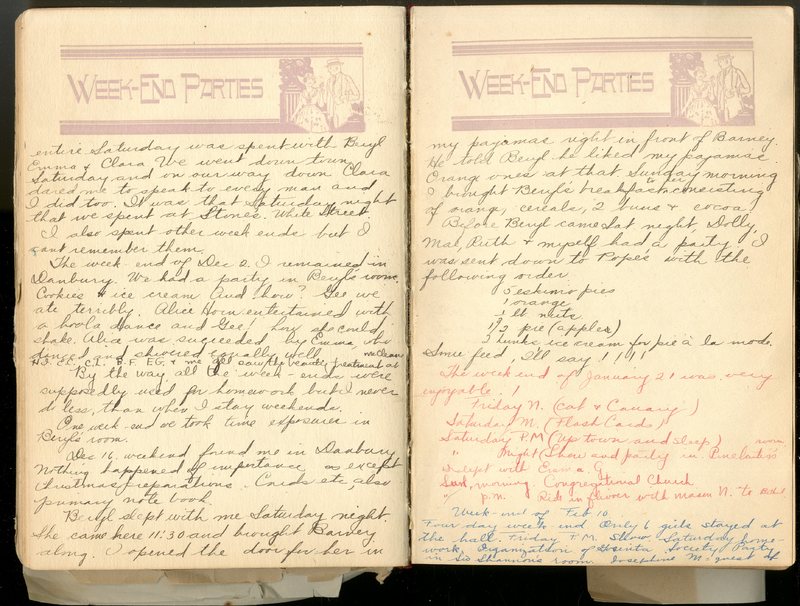 WEEK-END PARTIES
entire Saturday was spent with Beryl
Emma & Clara We went down town
Saturday and on our way down Clara
dared me to speak to every man and
I did too. It was that Saturday night
that we spent at Stones. White Street
I also spent other week ends but I
cant remember them.
The week end of Dec 2. I remained in
Danbury. We had a party in Beryl's room.
Cookies & ice cream and how? Gee we
ate terribly. Alice Horn entertained with
a hoola dance and Gee! how she could
shake. Alice was succeeded by Emma who
danced and shivered equally well.
me all saw the beauty treatment at McLean
By the way all the week-ends were
supposedly used for homework but I never
do less, than when I stay weekends.
One week-end we took time exposures in
Beryl's room.
Dec 16. weekend found me in Danbury
Nothing happened of importance except
Christmas preparations. Cards etc also
primary note book
Beryl slept with me Saturday night.
She came here 11:30 and brought Barney
along. I opened the door for her in
WEEK-END PARTIES
my pajamas right in front of Barney.
He told Beryl he liked my pajamas.
Orange ones at that Sunday morning
I brought Beryl's breakfast consisting
of orange, cereals, 2 buns & cocoa
Before Beryl came Sat night, Dolly,
Mal, Ruth & myself had a party. I
was sent down to Popes with the
following order
5 eskimo pies
1 orange
1 lb nuts
1/2 pie (apples)
3 bricks ice cream for pie à la mode.
Some feed, I'll say !!!!
The week end of January 21 was very
enjoyable!
Friday N. (Cat & Canary)
Saturday M. (Flash Cards)
Saturday P.M (Up town and sleep)
" Night (Show and party in room
Slept with Emma G.
Sun. morning. Congregational Church
" p.m. Ride in flivver with Mason N. to Bethel
Week-end of Feb 10
Four day week-end Only 6 girls stayed at
the hall. Friday P.M. Show, Saturday home-
work, Organization of Society Party
in Sis Shannons room. Josephine M. guest of